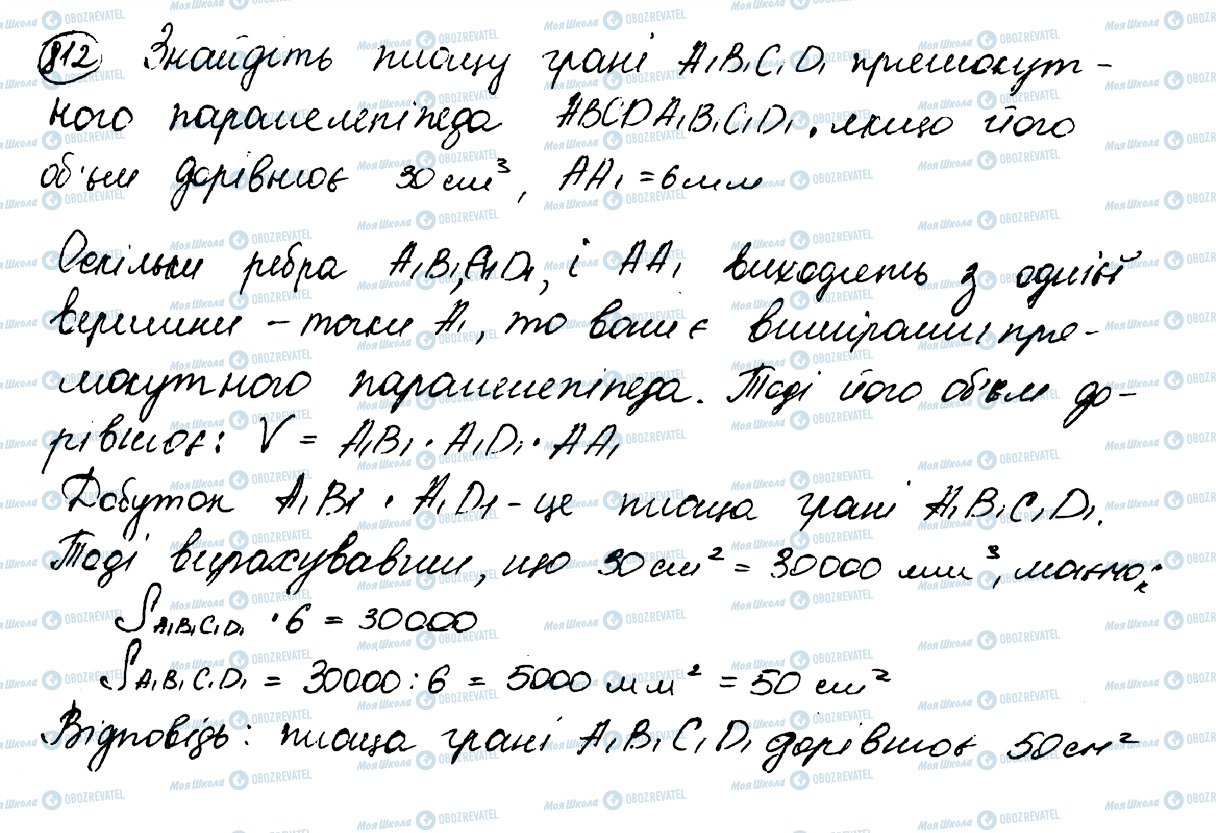 812 Знайдіть площу грані A₁B₁C₁D₁ прямокут-
ного паралелепіпеда ABCDA₁B₁C₁D₁, якщо його
об'єм дорівнює 30 см³, AA₁ = 6 мм
Оскільки ребра A₁B₁, A₁D₁, і AA₁ виходять з однієї
вершини – точки A₁, то вони є вимірами пря-
мокутного паралелепіпеда. Тоді його об'єм до-
рівнює: V = A₁B₁ · A₁D₁ · AA₁
Добуток A₁B₁ · A₁D₁ – це площа грані A₁B₁C₁D₁.
Тоді вирахувавши, що 30 см² = 30000 мм³,
S A₁B₁C₁D₁ · 6 = 30000
S A₁B₁C₁D₁ = 30000 : 6 = 5000 мм² = 50 см²
Відповідь: площа грані A₁B₁C₁D₁ дорівнює 50 см²
МояШкола OBOZREVATEL